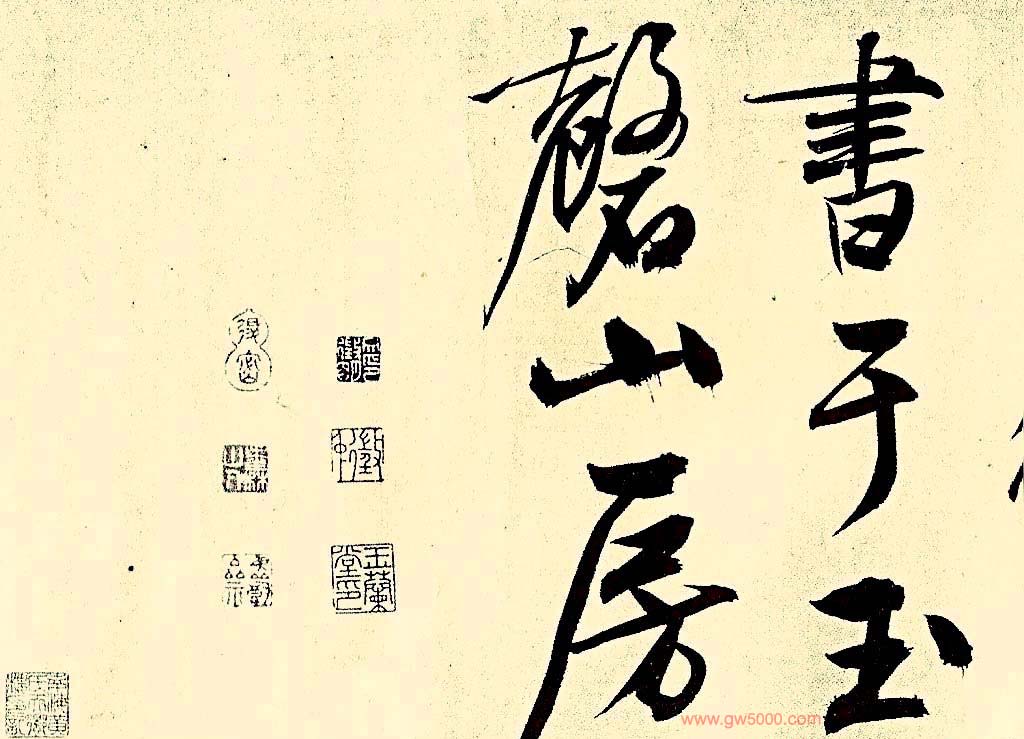 書于玉
磬山房
徵
仲
玉蘭
堂印
得密
www.gw5000.com